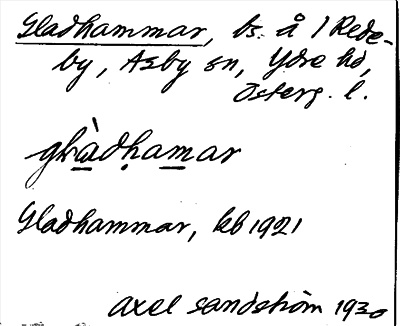 Gladhammar, bs. å 1 Rede-
by, Asby sn, Ydre hd,
Österg. l.
glàdḥamar
Gladhammar, kb 1921
Axel Sandström 1930